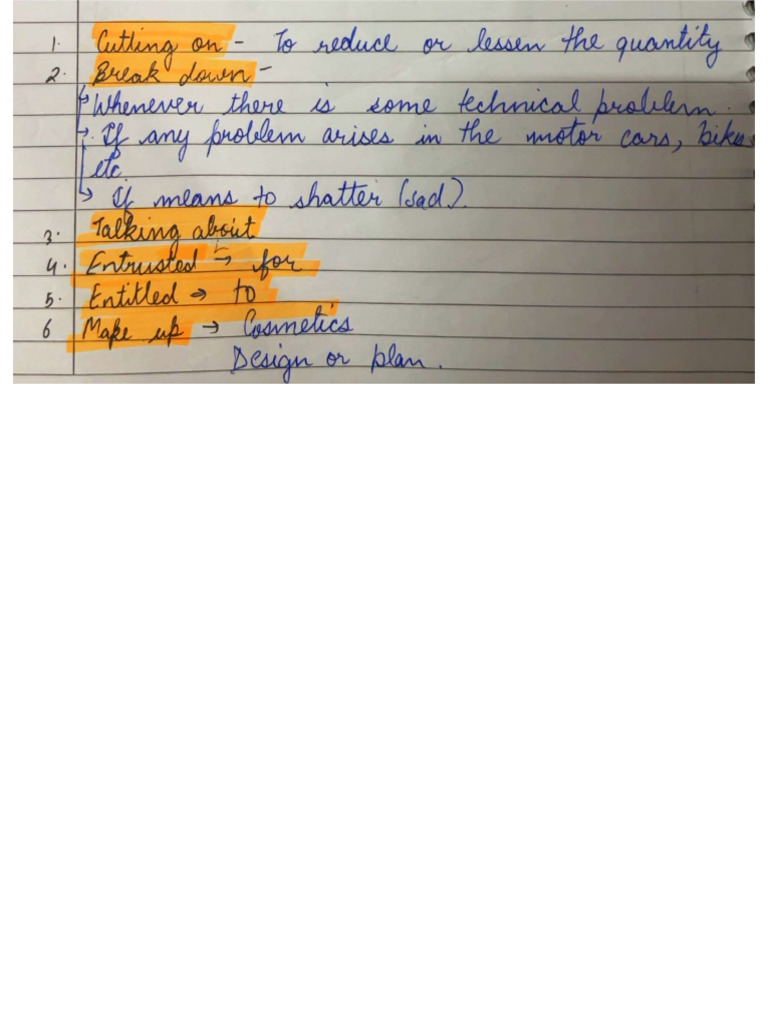 1. Cutting on - To reduce or lessen the quantity
2. Break down -
↳ Whenever there is some technical problem.
→ If any problem arises in the motor cars, bikes
etc.
↳ If means to shatter (sad).
3. Talking about
4. Entrusted → for
5. Entitled → to
6 Make up → Cosmetics
Design or plan.